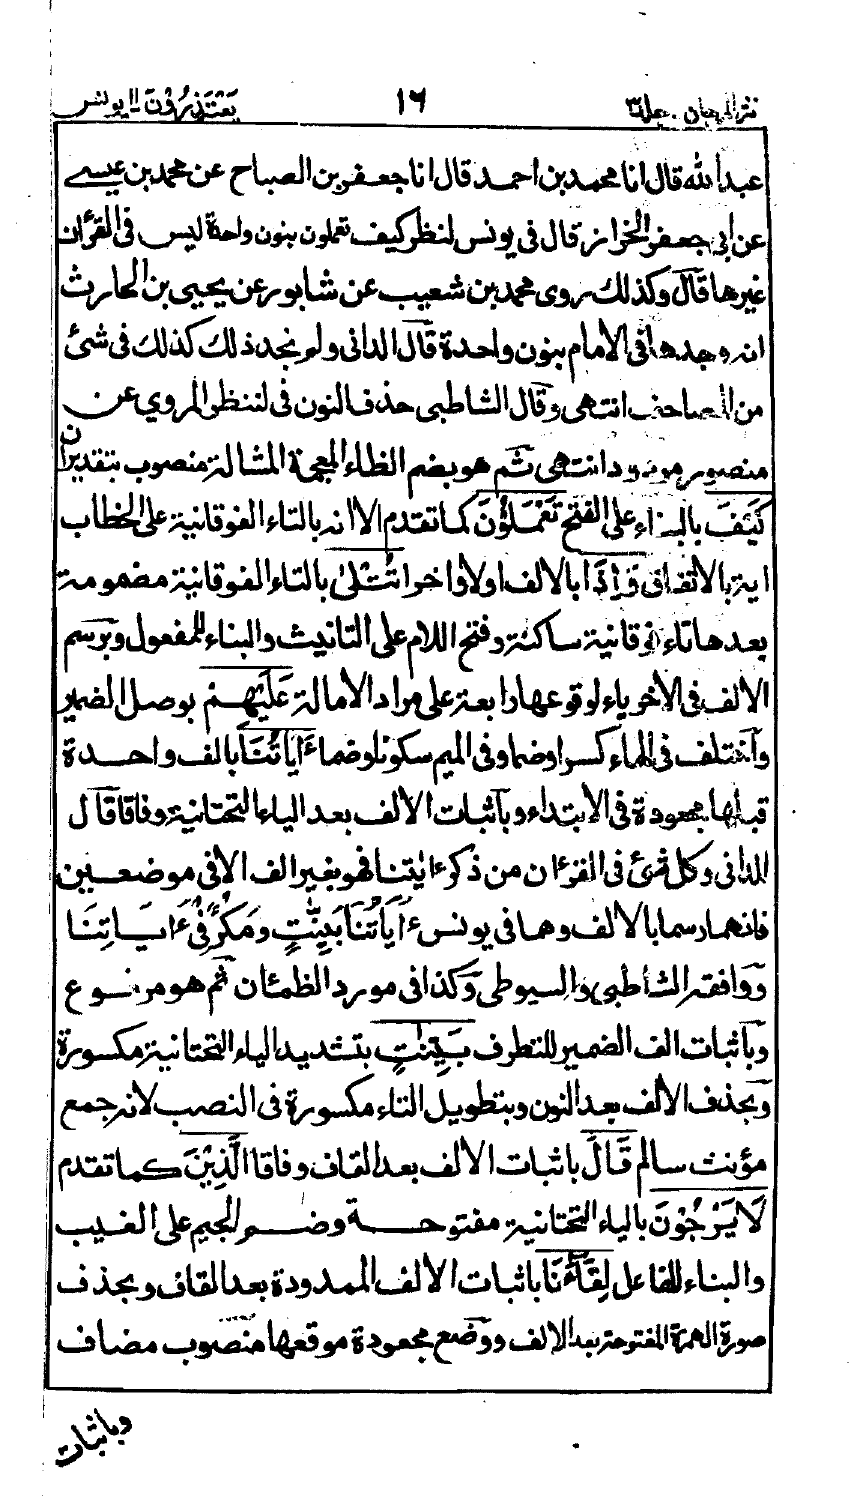 نثر المرجان جلد٣ ١٦ يَعْتَذِرُوْنَ ١١ يونس
عبد الله قال انا محمد بن احمد قال انا جعفر بن الصباح عن محمد بن عيسے
عن ابي جعفر الخزاز قال فى يونس لنظر كيف تعملون بنون واحدة ليس فى القرءان
غيرها قال وكذلك روى محمد بن شعيب عن شابور عن يحيى بن الحارث
انه وجدها فى الامام بنون واحدة قال الدانى ولم نجد ذلك كذلك فى شئ
من المصاحف انتهى وقال الشاطبى حذف النون فى لننظر المروي عن
منصور مردود انتهى ثم هو بضم الظاء المعجمة المشالة منصوب بتقدير ان
كَيْفَ بالبناء على الفتح تَعْمَلُوْنَ كما تقدم الا انه بالتاء الفوقانية على الخطاب
اية بالاتفاق وَاِذَا بالالف اولا واخرا تُتْلٰى بالتاء الفوقانية مضمومة
بعدها تاء فوقانية ساكنة وفتح اللام على التانيث والبناء للمفعول وبرسم
الالف فى الاخر ياء لوقوعها رابعة على مراد الامالة عَلَيْهِمْ بوصل الضمير
واختلف فى الهاء كسرا وضما وفى الميم سكونا وضما ءَايَاتُنَا بالف واحدة
قبلها مجعودة فى الابتداء وباثبات الالف بعد الياء التحتانية وفاقا قال
الدانى وكل شئ فى القرءان من ذكر ءايتنا فهو بغير الف الا فى موضعين
فانهما رسما بالالف وهما فى يونس ءَايَاتُنَا بَيِّنٰتٍ وَمَكْرٌ فِيْ ءَايَاتِنَا
ووافقه الشاطبى والسيوطى وكذا فى مورد الظمئان ثم هو مرفوع
وباثبات الف الضمير للتطرف بَيِّنٰتٍ بتشديد الياء التحتانية مكسورة
وبحذف الالف بعد النون وبتطويل التاء مكسورة فى النصب لانه جمع
مؤنث سالم قَالَ باثبات الالف بعد القاف وفاقا الَّذِيْنَ كما تقدم
لَا يَرْجُوْنَ بالياء التحتانية مفتوحة وضم الجيم على الغيب
والبناء للفاعل لِقَآءَنَا باثبات الالف الممدودة بعد القاف وبحذف
صورة الهمزة المفتوحة بعد الالف ووضع مجعودة موقعها منصوب مضاف
وباثبات